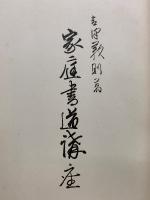 吉田苞則著
家庭書道講座